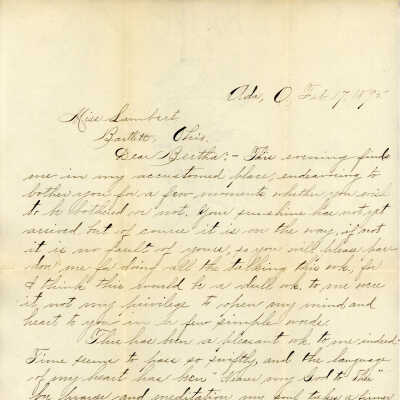 Ada, O. Feb 17, 1895
Miss Lambert
Bartlett, Ohio.
Dear Bertha:- This evening finds
me in my accustomed place, endeavoring to
bother you for a few moments whether you wish
to be bothered or not. Your sunshine has not yet
arrived but of course it is on the way, if not
it is no fault of yours, so you will please par-
don me for doing all the talking this wk., for
I think this would be a dull wk. to me were
it not my privilege to open my mind and
heart to you in a few simple words.
This has been a pleasant wk to me indeed.
Time seems to pass so swiftly, and the language
of my heart has been "Nearer my God to Thee"
In praise and meditation my soul takes a firmer